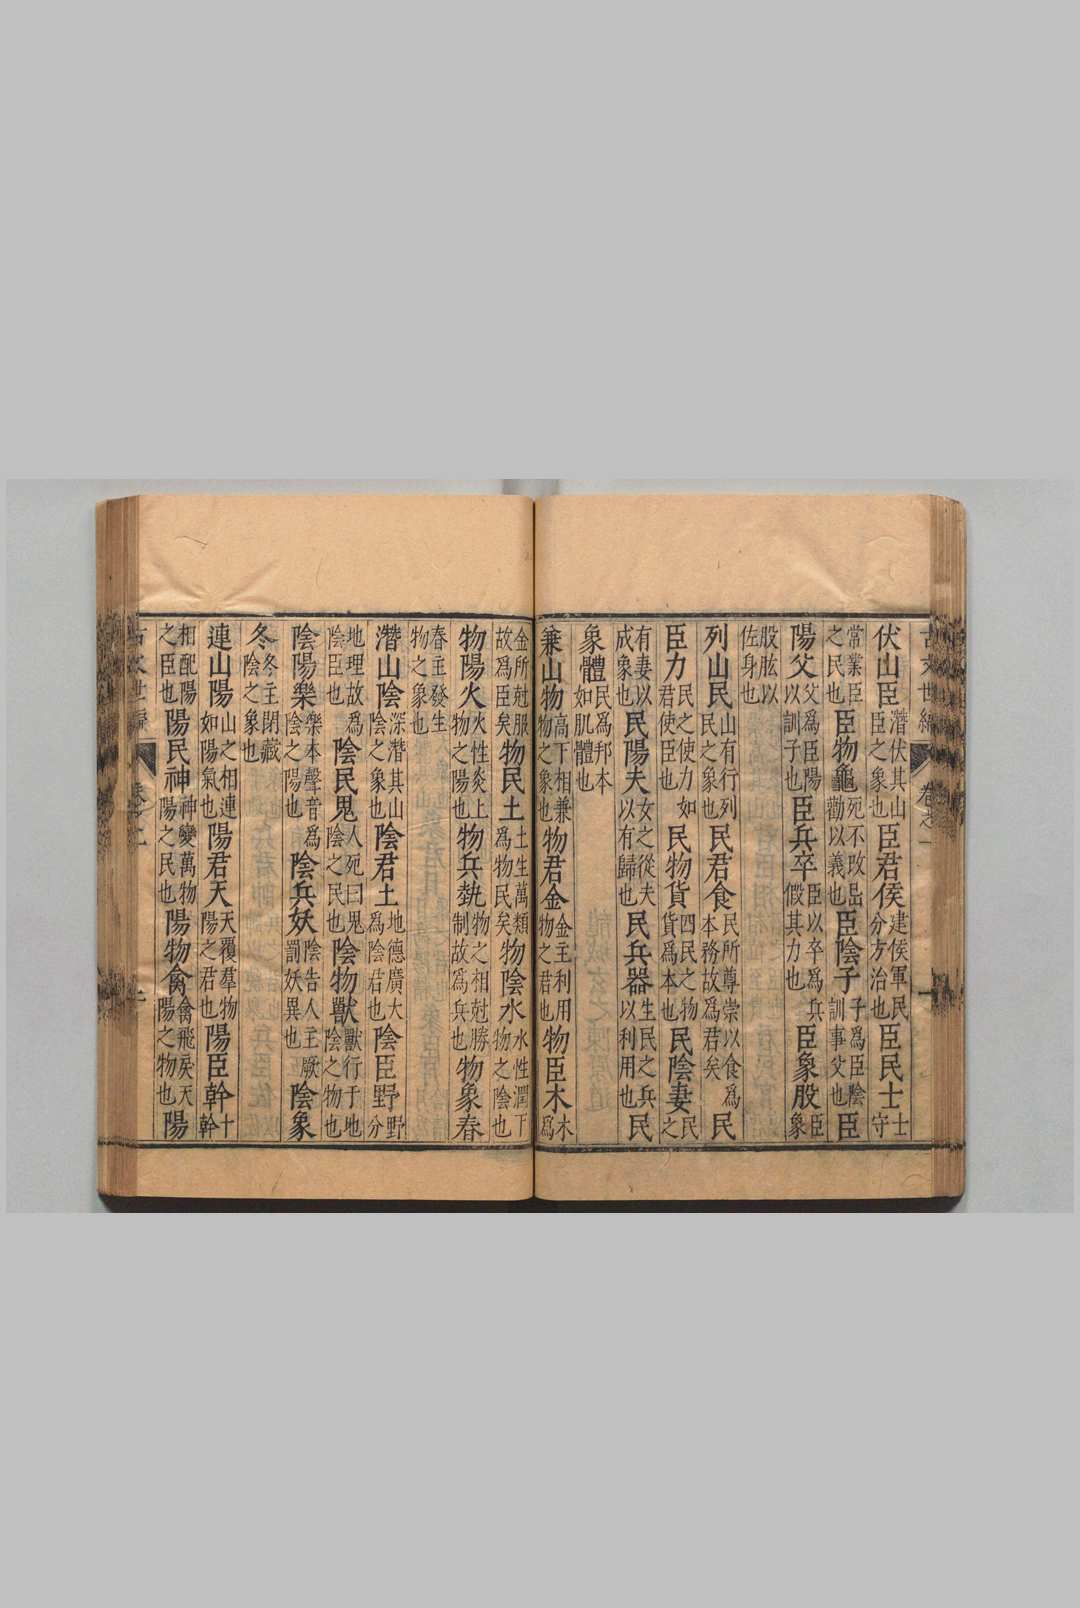 古文世編 卷之一
伏山臣潛伏其山臣之象也臣君侯建侯軍民分方治也臣民士士守
常業臣之民也臣物龜死不改岀勸以義也臣陰子子爲臣陰訓事父也臣
陽父父爲臣陽以訓子也臣兵卒臣以卒爲兵假其力也臣象股臣象
股肱以佐身也
列山民山有行列民之象也民君食民所尊崇以食爲本務故爲君矣民
臣力民之使力如君使臣也民物貨四民之物貨爲本也民陰妻民之
有妻以成象也民陽夫女之從夫以有歸也民兵器生民之兵以利用也民
象體民爲邦本如肌體也
兼山物高下相兼物之象也物君金金主利用物之君也物臣木木爲
金所尅服故爲臣矣物民土土生萬類爲物民矣物陰水水性潤下物之陰也
物陽火火性炎上物之陽也物兵埶物之相尅勝制故爲兵也物象春
春主發生物之象也
潛山陰深潛其山陰之象也陰君土地德廣大爲陰君也陰臣野野分
地理故爲陰臣也陰民鬼人死曰鬼陰之民也陰物獸獸行于地陰之物也
陰陽樂樂本聲音爲陰之陽也陰兵妖陰告人主厥罰妖異也陰象
冬冬主閉藏陰之象也
連山陽山之相連如陽氣也陽君天天覆羣物陽之君也陽臣幹十幹
相配陽之臣也陽民神神變萬物陽之民也陽物禽禽飛戾天陽之物也陽
古文世編 卷之一